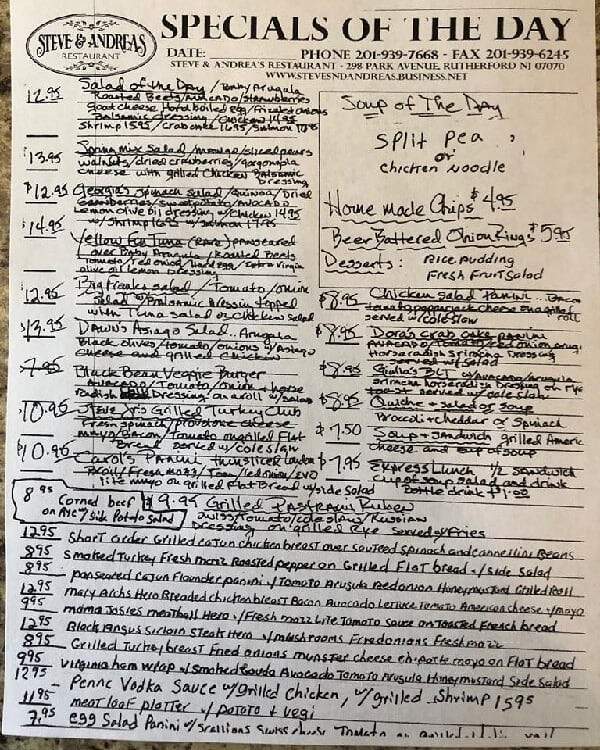 STEVE & ANDREA'S
RESTAURANT
SPECIALS OF THE DAY
DATE: PHONE 201-939-7668 - FAX 201-939-6245
STEVE & ANDREA'S RESTAURANT - 298 PARK AVENUE, RUTHERFORD NJ 07070
WWW.STEVESNDANDREAS.BUSINESS.NET
12.95 Salad of the Day / Baby Arugula
Roasted Beets/Avocado/Strawberries
goat cheese Hard boiled egg/
Balsamic dressing/chicken 14.95
Shrimp 15.95/crabcake 16.95/Salmon
$13.95 Mix Salad/mango/sliced pears
walnuts/dried cranberries/gorgonzola
cheese with grilled Chicken Balsamic
Dressing
$12.95 Georgia's Spinach Salad/Quinoa/Dried
Cranberries/sweet potato/avocado
Lemon olive oil dressing w/chicken 14.95
w/shrimp 16.95 w/salmon 17.95
$14.95 Yellow Fin Tuna (rare) pan seared
over Baby Arugula/Roasted Beets
Tomato/red onion/hard egg/extra virgin
olive oil lemon dressing
12.95 Big Greek salad/Tomato/onion
Salad w/Balsamic Dressing topped
with Tuna salad or chicken salad
$13.95 Dawn's Asiago Salad.. Arugula
Black olives/tomato/onions w/Asiago
cheese and grilled Chicken
$7.95 Black Bean Veggie Burger
Avocado/Tomato/onion + horse
Radish on a roll w/salad
$10.95 Steve Jr's Grilled Turkey Club
Fresh spinach/provolone cheese
mayo/Bacon/Tomato on grilled Flat
Bread served w/coleslaw
$10.95 Carol's Panini Thin sliced London
Broil/Fresh mozz/Tom/red onion/
mayo on grilled Flat Bread w/side salad
Soup of The Day
Split Pea
or
chicken Noodle
Home made Chips $4.95
Beer Battered Onion Rings $5.95
Desserts: Rice pudding
Fresh Fruit Salad
$8.95 Chicken salad Panini... Bacon
tomato pepperjack cheese on a grilled roll
served w/coleslaw
$8.95 Dora's crab cake panini
Avocado/Tomato/red onion arug.
Horseradish Sriracha Dressing
served w/salad
$8.95 Giulio's BLT w/avocado/arugula
sriracha horseradish Dressing on Rye
toast served w/coleslaw
$8.95 Quiche + salad or soup
Broccoli + cheddar or Spinach
$7.50 Soup + Sandwich grilled Americ
cheese and cup of soup
$7.95 Express Lunch 1/2 sandwich
cup of soup salad and drink
Bottle drink $1.00
8.95 Corned beef
on Rye w/side Potato Salad
$9.95 Grilled Pastrami Ruben
swiss/tomato/coleslaw/Russian
Dressing on grilled Rye served w/fries
12.95 Short order Grilled cajun chicken breast over sauteed spinach and cannellini Beans
8.95 smoked Turkey Fresh mozz Roasted pepper on Grilled FLAT bread w/side salad
8.95 panseared Cajun Flounder panini w/Tomato Arugula Redonion Honeymustard Grilled Roll
12.95 mary Anns Hero Breaded chicken breast Bacon Avocado Lettuce Tomato American cheese w/mayo
9.95 mama Josies meatball Hero w/Fresh mozz Lite Tomato sauce on Toasted French bread
12.95 Black Angus sirloin steak Hero w/mushrooms Fried onions Fresh mozz
8.95 Grilled Turkey breast fried onions munster cheese chipotle mayo on FLAT bread
9.95 Virginia ham wrap w/smoked Gouda Avocado Tomato Arugula Honeymustard Side Salad
12.95 Penne Vodka Sauce w/Grilled Chicken, w/grilled Shrimp 15.95
11.95 meat loaf platter w/potato + vegi
7.95 egg Salad Panini w/scallions swiss cheese Tomato on grilled